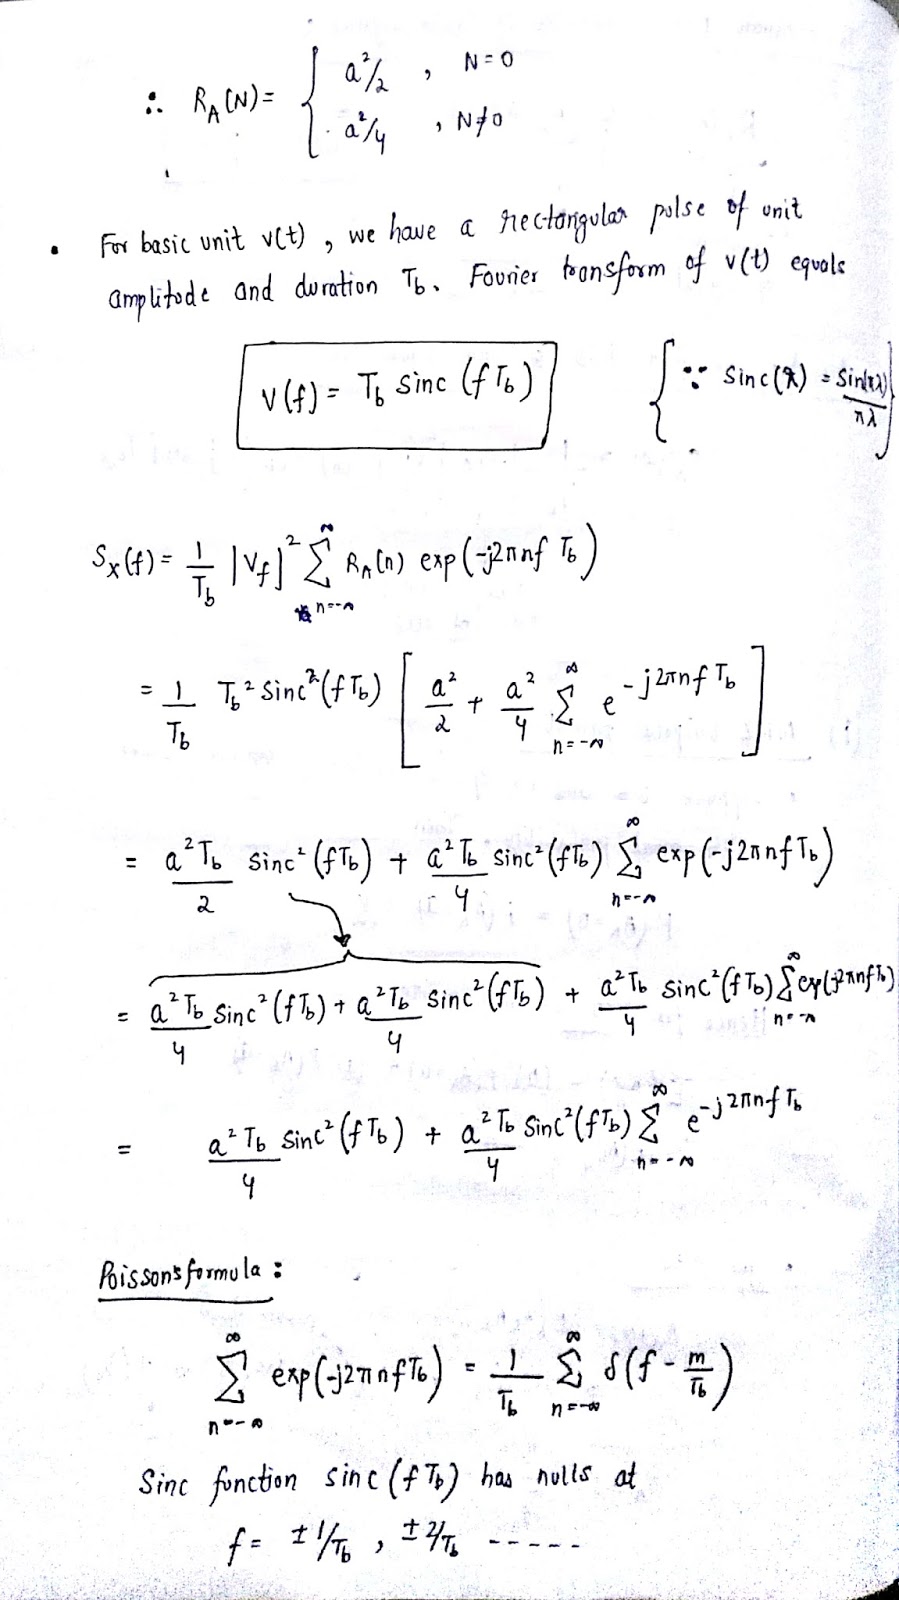 ∴ R_A(N) = { a²/2 , N=0
a²/4 , N≠0
• For basic unit v(t) , we have a rectangular pulse of unit
amplitude and duration T_b. Fourier transform of v(t) equals
V(f) = T_b sinc (f T_b) { ∵ Sinc(λ) = Sin(πλ)/πλ }
S_X(f) = 1/T_b |V_f|² ∑_{n=-∞}^{∞} R_A(n) exp(-j2πnf T_b)
= 1/T_b T_b² Sinc²(f T_b) [ a²/2 + a²/4 ∑_{n=-∞}^{∞} e^{-j2πnf T_b} ]
= a²T_b/2 Sinc²(fT_b) + a²T_b/4 sinc²(fT_b) ∑_{n=-∞}^{∞} exp(-j2πnfT_b)
= a²T_b/4 Sinc²(fT_b) + a²T_b/4 Sinc²(fT_b) + a²T_b/4 Sinc²(fT_b) ∑_{n=-∞}^{∞} exp(-j2πnfT_b)
= a²T_b/4 Sinc²(fT_b) + a²T_b/4 Sinc²(fT_b) ∑_{n=-∞}^{∞} e^{-j2πnfT_b}
Poisson's formula :
∑_{n=-∞}^{∞} exp(-j2πnfT_b) = 1/T_b ∑_{n=-∞}^{∞} δ(f - m/T_b)
Sinc function sinc(fT_b) has nulls at
f = ±1/T_b , ±2/T_b -----